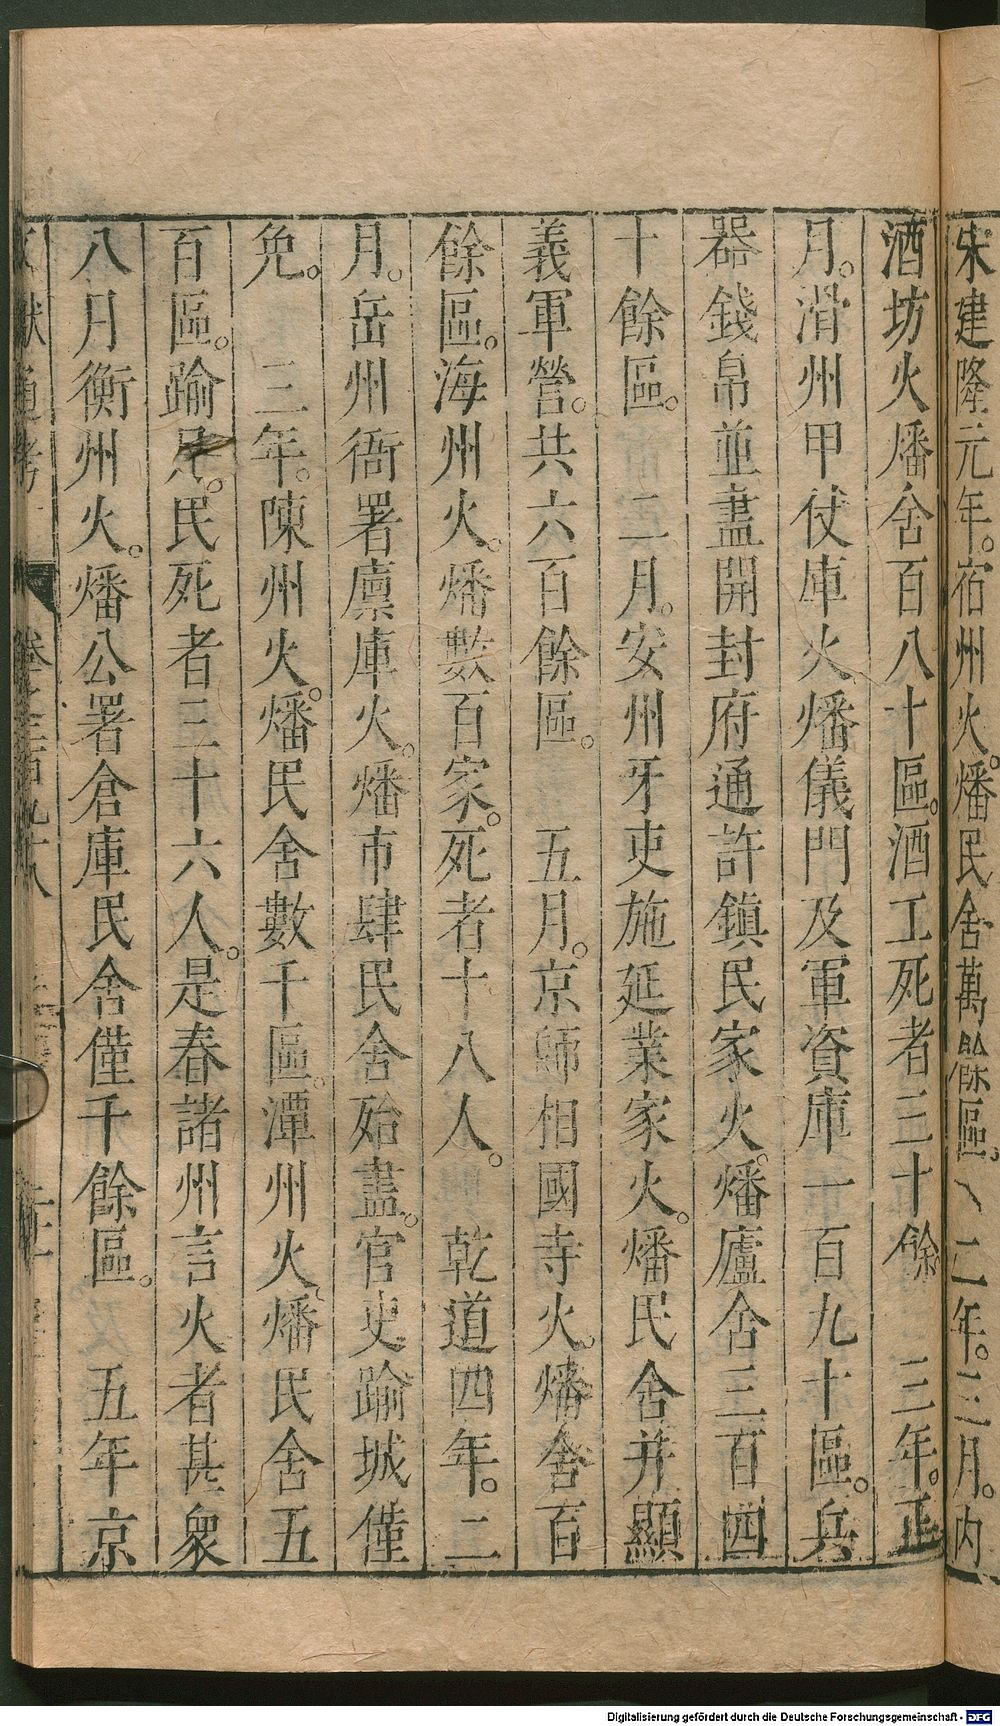 宋建隆元年。宿州火。燔民舍萬餘區。 二年。三月。內
酒坊火燔舍百八十區。酒工死者三十餘。 三年。正
月。滑州甲仗庫火燔儀門及軍資庫一百九十區。兵
器錢帛並盡開封府通許鎮民家火。燔廬舍三百四
十餘區。 二月。安州牙吏施延業家火。燔民舍并顯
義軍營。共六百餘區。 五月。京師相國寺火。燔舍百
餘區。海州火。燔數百家。死者十八人。 乾道四年。二
月。岳州衙署廩庫火。燔市肆民舍殆盡。官吏踰城僅
免。 三年。陳州火。燔民舍數千區。潭州火。燔民舍五
百區。踰月。民死者三十六人。是春諸州言火者甚衆
八月衡州火。燔公署倉庫民舍僅千餘區。 五年京
文獻通考
Digitalisierung gefördert durch die Deutsche Forschungsgemeinschaft - DFG